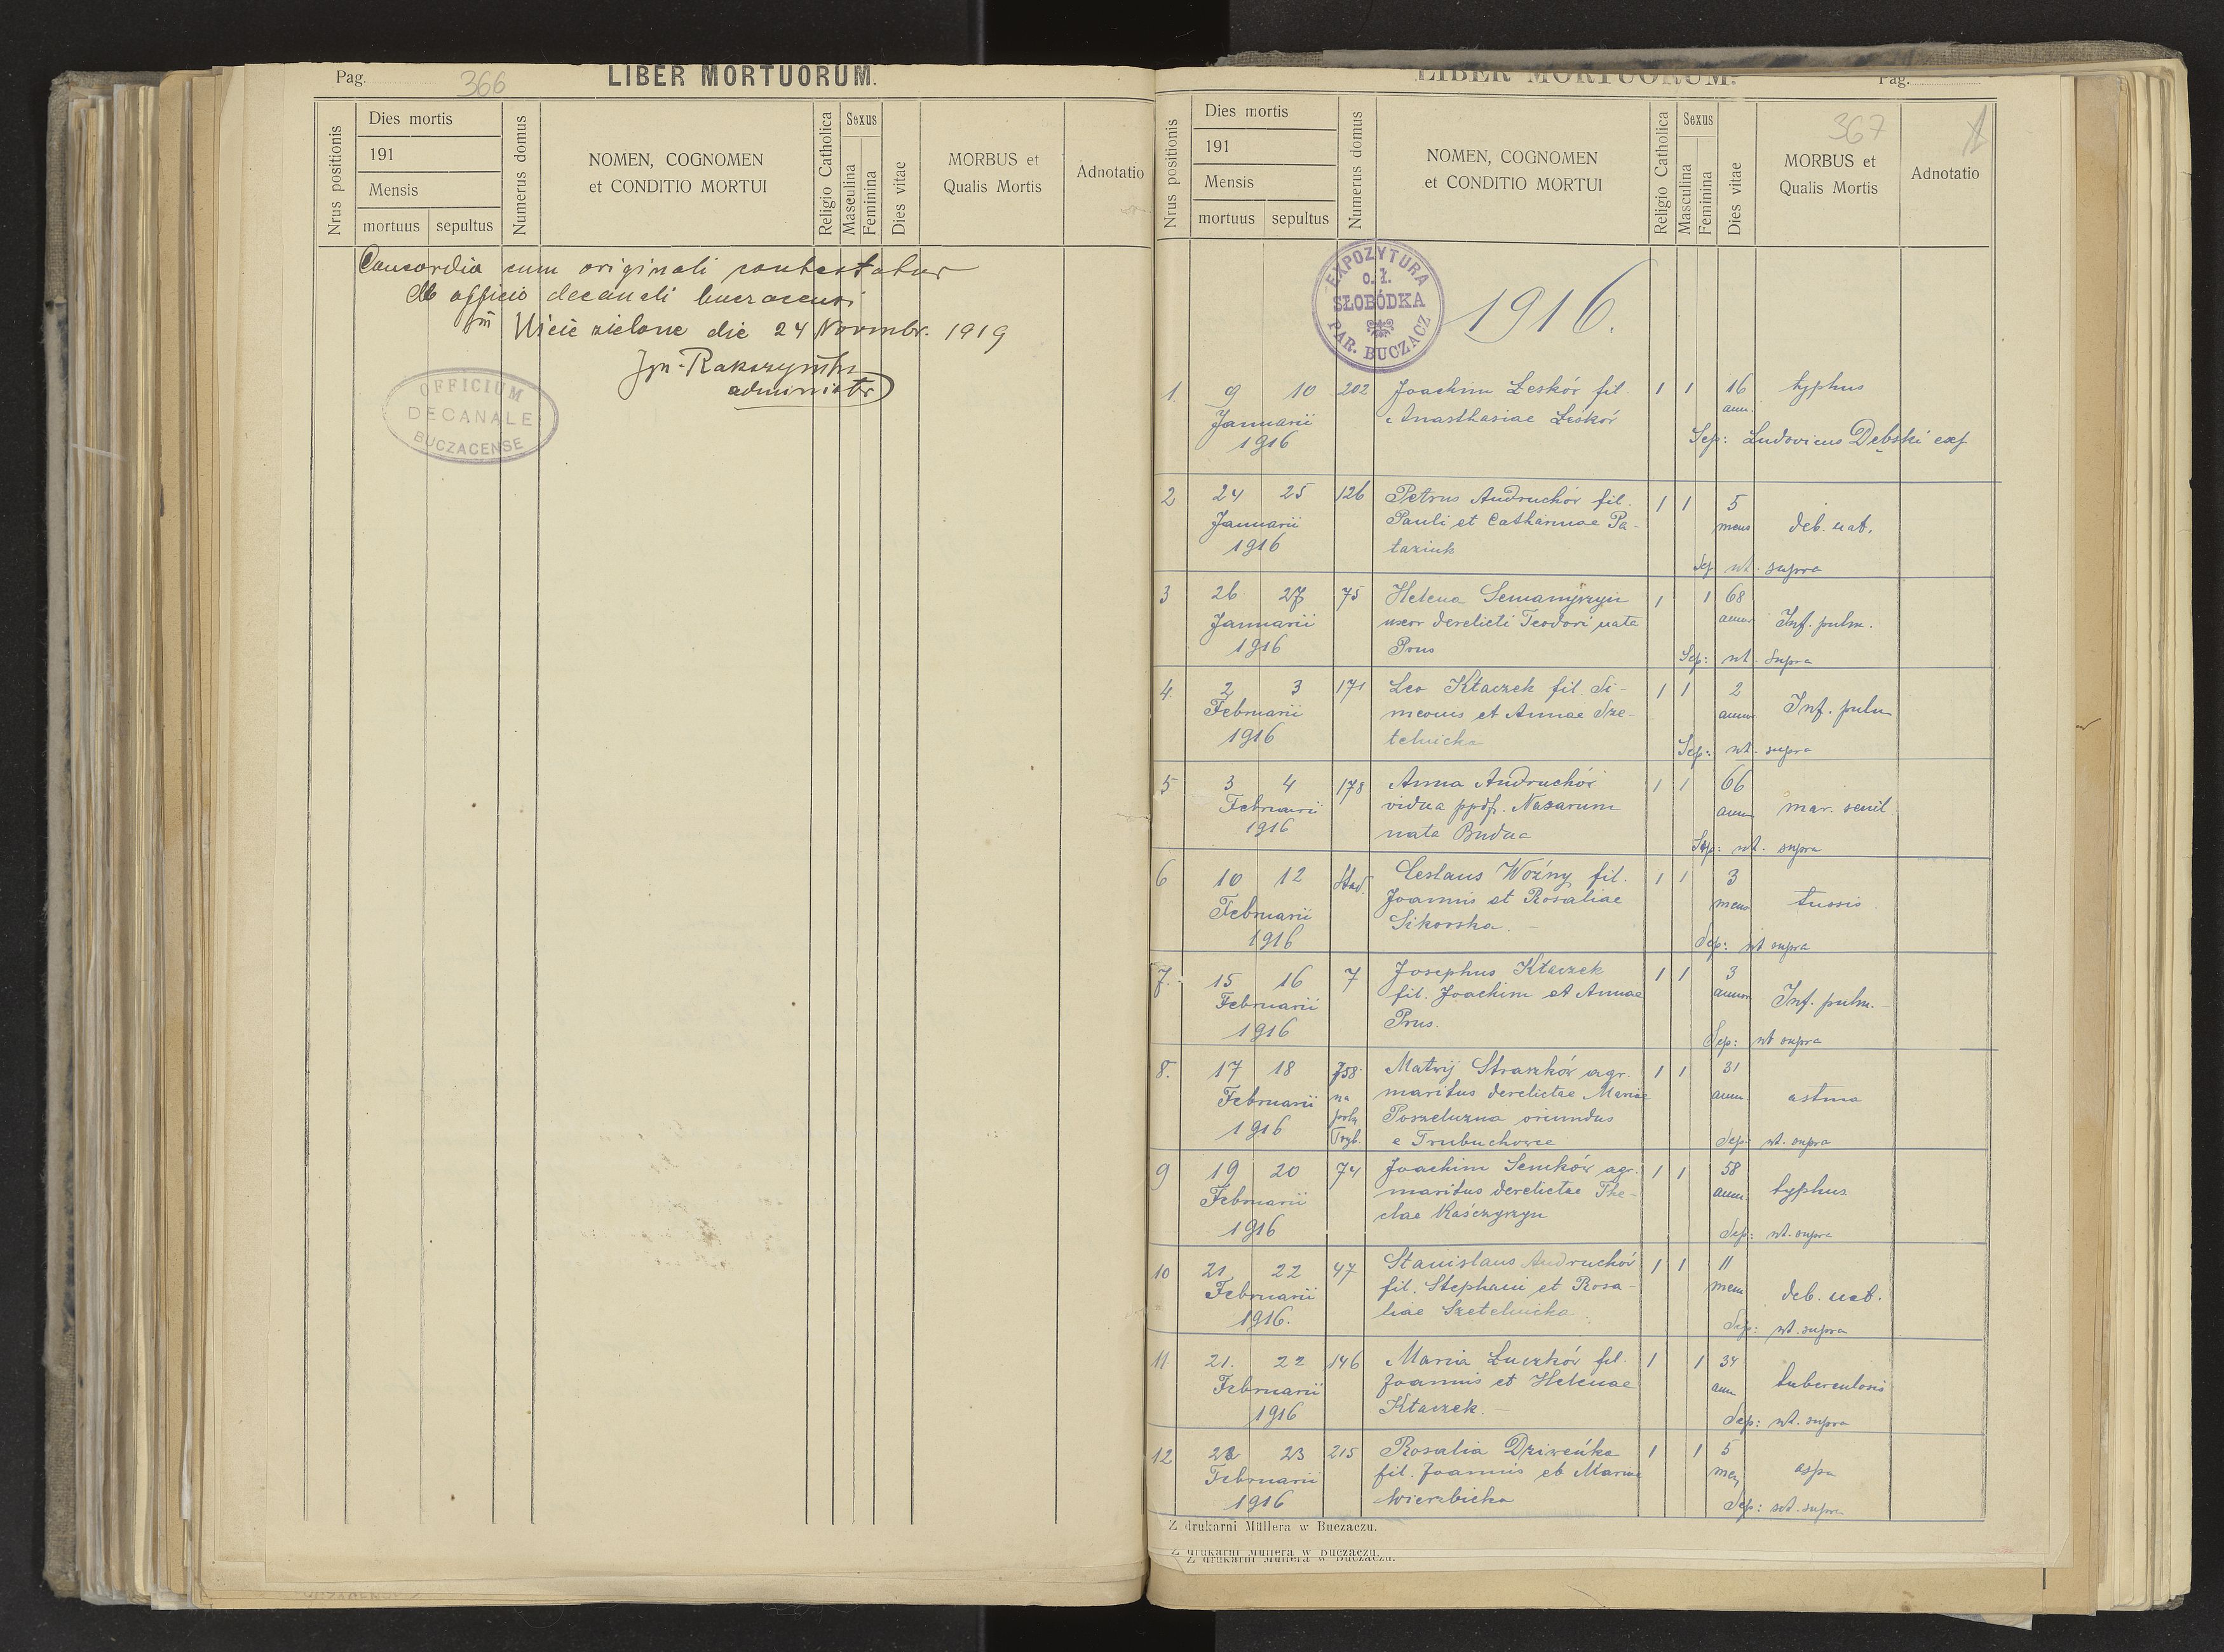 Pag.
366
LIBER MORTUORUM.
Nrus positionis
Dies mortis
191
Mensis
mortuus
sepultus
Numerus domus
NOMEN, COGNOMEN
et CONDITIO MORTUI
Religio Catholica
Sexus
Masculina
Feminina
Dies vitae
MORBUS et
Qualis Mortis
Adnotatio
Concordia cum originali contestatur
Ab officio decanali buczacensi
in Uście zielone die 24 Novembr. 1919
administr
OFFICIUM
DECANALE
BUCZACENSE
LIBER MORTUORUM.
Pag.
367
Nrus positionis
Dies mortis
191
Mensis
mortuus
sepultus
Numerus domus
NOMEN, COGNOMEN
et CONDITIO MORTUI
Religio Catholica
Sexus
Masculina
Feminina
Dies vitae
MORBUS et
Qualis Mortis
Adnotatio
EXPOZYTURA
o. ł.
SŁOBÓDKA
PAR. BUCZACZ
1916.
1. 9 10 202 Joachim Leskór fil. 1 1 16 typhus
Januarii Anasthasiae Leskór ann.
1916 Sep: Ludovicus Dębski exp
2 24 25 126 Petrus Andruchór fil. 1 1 5
Januarii Pauli et Catharinae Pa- mens deb. nat.
1916 taziuk
Sep ut. supra
3 26 27 75 Helena Semanyszyn 1 1 68
Januarii uxor derelicti Teodori nata annor Inf. pulm.
1916 Prus Sep: ut. supra
4. 2 3 171 Leo Kłaczek fil. Si- 1 1 2
Februarii meonis et Annae Sze- annor Inf. pulm
1916 telnicka Sep: ut. supra
5 3 4 178 Anna Andruchór 1 1 66
Februarii vidua ppdf. Nazarum annor mar. senil.
1916 nata Budna Sep: ut. supra
6 10 12 Stad. Ceslaus Woźny fil. 1 1 3
Februarii Joannis et Rosaliae mens tussis
1916 Sikorska. Sep: ut supra
7. 15 16 7 Josephus Kłaczek 1 1 3
Februarii fil. Joachim et Annae annor Inf. pulm.
1916 Prus. Sep: ut supra
8. 17 18 758 Matvij Straszków agr. 1 1 31
Februarii na maritus derelictae Mariae ann astma
1916 oriundus
e Trubuchowce Sep: ut. supra
9 19 20 74 Joachim Semków agr. 1 1 58
Februarii maritus derelictae The- ann. typhus
1916 clae Kaśczyszyn Sep: ut. supra
10 21 22 47 Stanislaus Andruchór 1 1 11
Februarii fil. Stephani et Rosa- mens deb. nat.
1916. liae Szetelnicka Sep: ut. supra
11. 21. 22 146 Maria Luczków fil. 1 1 34
Februarii Joannis et Helenae ann tuberculosis
1916 Kłaczek. Sep: ut. supra
12 22 23 215 Rosalia Dziweńka 1 1 5
Februarii fil. Joannis et Mariae men aspa
1916 Wierzbicka Sep: ut. supra
Z drukarni Müllera w Buczaczu.
Z drukarni Müllera w Buczaczu.
Z drukarni Müllera w Buczaczu.